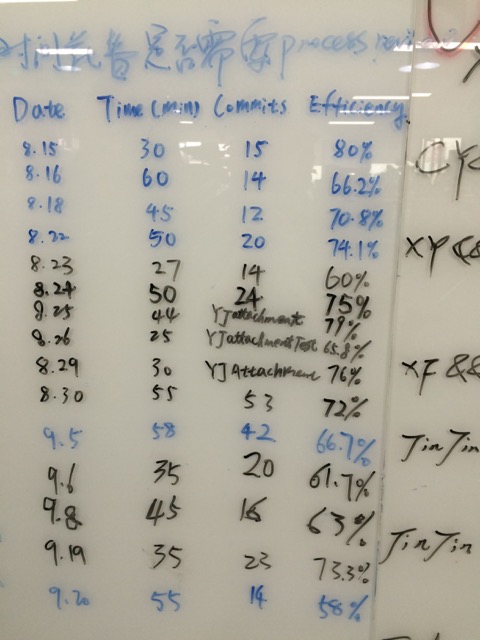 是否需要process review
Date Time (min) Commits Efficiency
8.15 30 15 80%
8.16 60 14 66.2%
8.18 45 12 70.8%
8.22 50 20 74.1%
8.23 27 14 60%
8.24 50 24 75%
8.25 44 YJ attachment 79%
8.26 25 YJ attachment Test 65.8%
8.29 30 YJ Attachment 76%
8.30 55 53 72%
9.5 58 42 66.7%
9.6 35 20 61.7%
9.8 45 16 63%
9.19 35 23 73.3%
9.20 55 14 58%
CYC
XY &&
XF &&
JinJin
JinJin